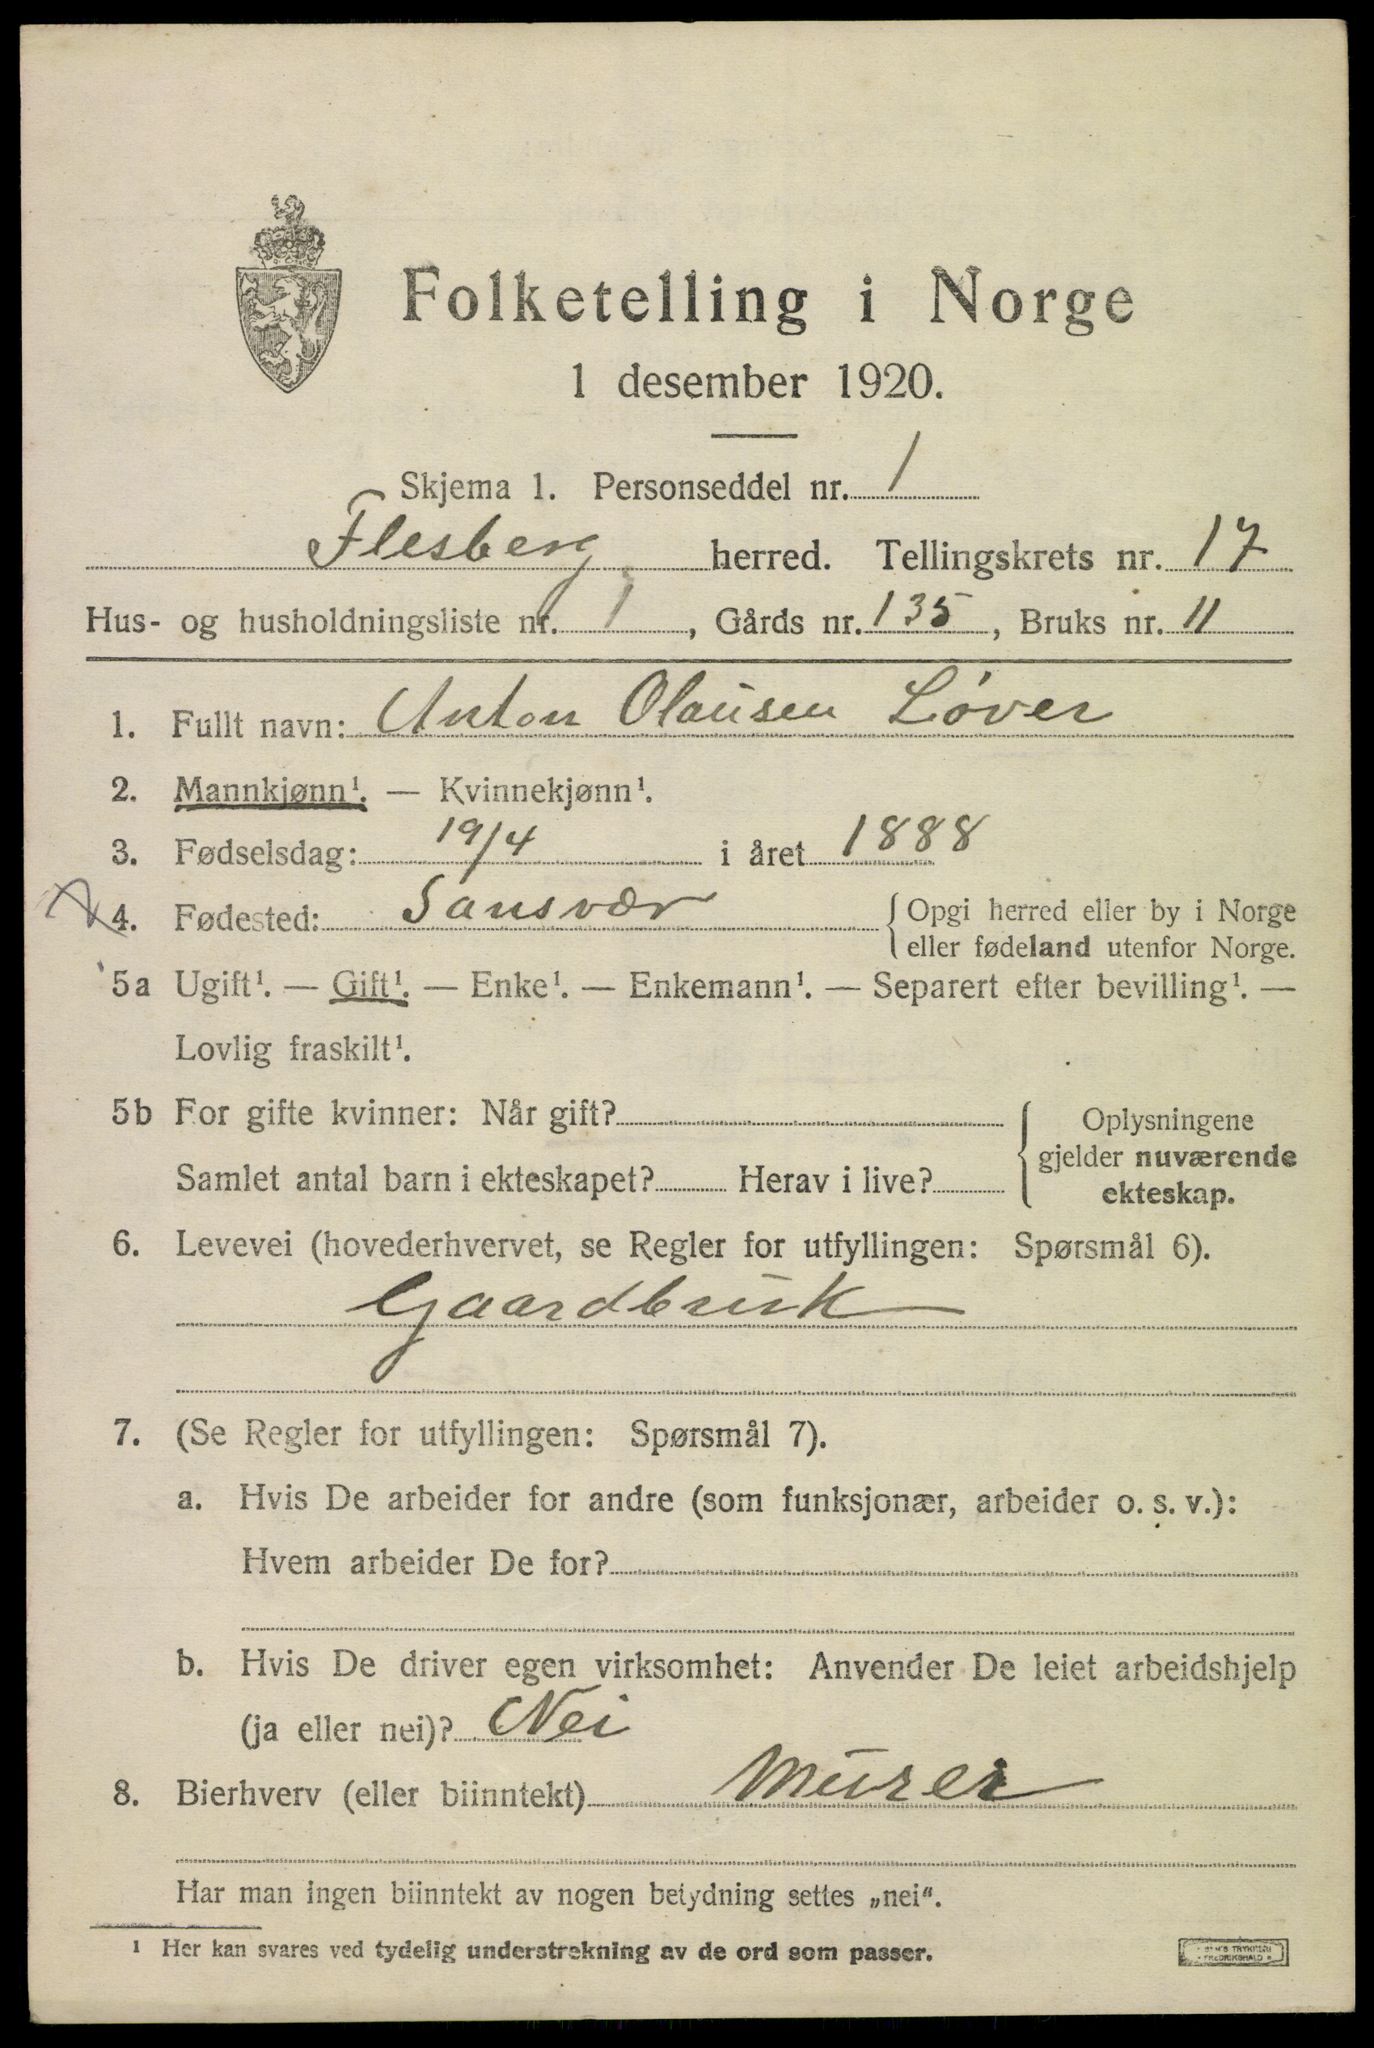 Folketelling i Norge
1 desember 1920.
Skjema 1. Personseddel nr. 1
Flesberg herred. Tellingskrets nr. 17
Hus- og husholdningsliste nr. 1, Gårds nr. 135, Bruks nr. 11
1. Fullt navn: Anton Olausen Løver
2. Mannkjønn¹. — Kvinnekjønn¹.
3. Fødselsdag: 19/4 i året 1888
4. Fødested: Sansvær
Opgi herred eller by i Norge
eller fødeland utenfor Norge.
5a Ugift¹. — Gift¹. — Enke¹. — Enkemann¹. — Separert efter bevilling¹. —
Lovlig fraskilt¹.
5b For gifte kvinner: Når gift?
Samlet antal barn i ekteskapet? Herav i live?
Oplysningene
gjelder nuværende
ekteskap.
6. Levevei (hovederhvervet, se Regler for utfyllingen: Spørsmål 6).
Gaardbruk
7. (Se Regler for utfyllingen: Spørsmål 7).
a. Hvis De arbeider for andre (som funksjonær, arbeider o. s. v.):
Hvem arbeider De for?
b. Hvis De driver egen virksomhet: Anvender De leiet arbeidshjelp
(ja eller nei)? Nei
8. Bierhverv (eller biinntekt) Murer
Har man ingen biinntekt av nogen betydning settes „nei“.
¹ Her kan svares ved tydelig understrekning av de ord som passer.
TRYKKERI
FREDRIKSHALD